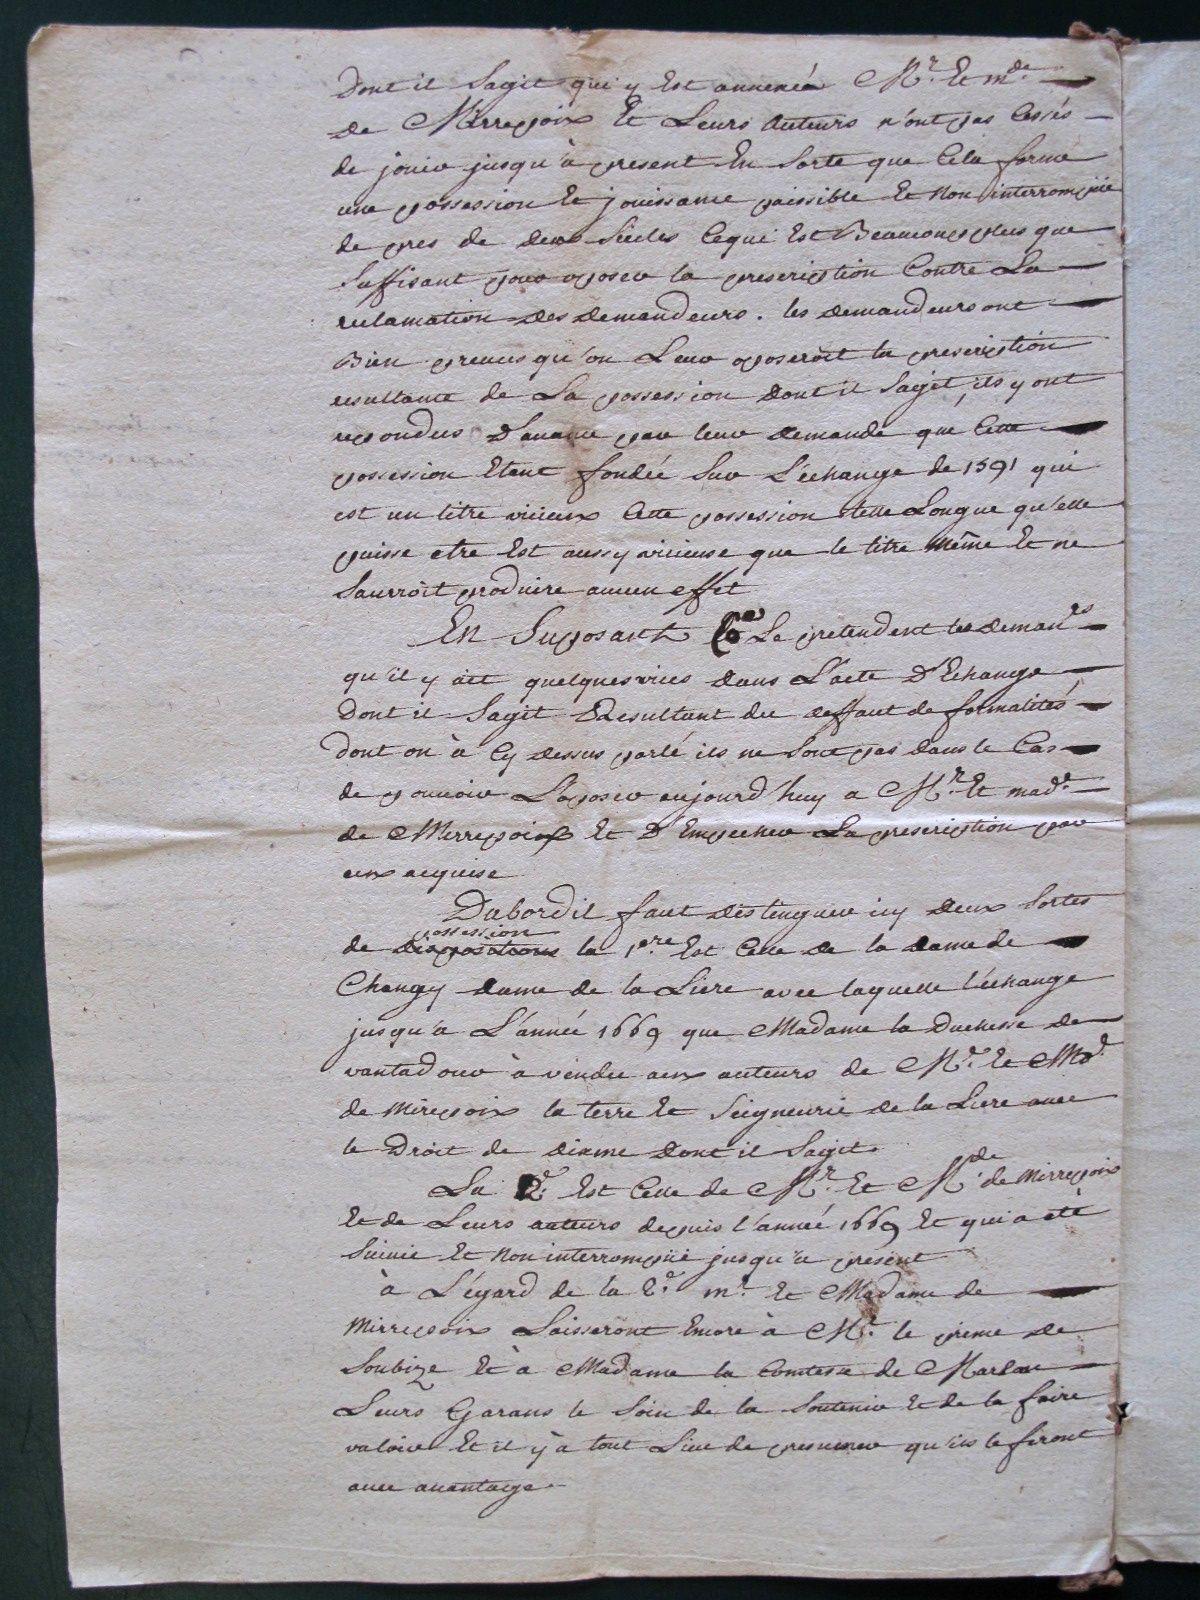 Dont il Sagit qui y Est annexée Mr. Et mde.
de Mirrepoix Et Leurs Auteurs n'ont pas Cessés
de jouir jusqu'à present En Sorte que Cela forme
une possession Et jouissance paissible Et Non interrompüe
de pres de deux Siécles Cequi Est Beaucoup plus que
Suffisant pour oposer la prescription Contre La
reclamation des demandeurs. les demandeurs ont
Bien prevus qu'on Leur oposeroit la prescription
resultante de La possession dont il Sagit, ils y ont
repondus D'avance par leur demande que Cette
possession Etant fondée Sur L'échange de 1591 qui
est un titre vicieux Cette possession telle Longue qu'elle
puisse etre Est aussy vicieuse que le titre même Et ne
Sauroit produire aucun effet
En Suposant Le pretendent les demanrs
qu'il y ait quelques vices dans L'acte D'Echange
Dont il Sagit Resultant du deffaut de formalités
dont on à Cy dessus parlé ils ne Sont pas dans le Cas
de pouvoir L'oposer aujourd'huy a Mr. Et made.
de Mirrepoix Et D'Empecher La prescription par
eux acquise
Dabord il faut distinguer icy deux Sortes
de possession la 1ere Est Celle de la dame de
Changy dame de la Liere avec laquelle l'échange
jusqu'a L'année 1669 que Madame la Duchesse de
vantadour à vendu aux auteurs de Mr. Et Mad.
de Mirepoix la terre Et Seigneurie de la Liere avec
le Droit de dixme dont il Sagit.
La 2e. Est Celle de Mr. Et Mde. de Mirrepoix
Et de Leurs auteurs depuis l'année 1669 Et qui a été
Suivie Et Non interrompüe jusqu'a present
à L'égard de la 2e. mr. Et Madame de
Mirrepoix Laisseront Encore à Mr. le prince de
Soubize Et à Madame la Comtesse de Marsan
Leurs Garans le Soin de la Soutenir Et de la faire
valoir Et il y à tout Lieu de presumer qu'ils le feront
avec avantage.